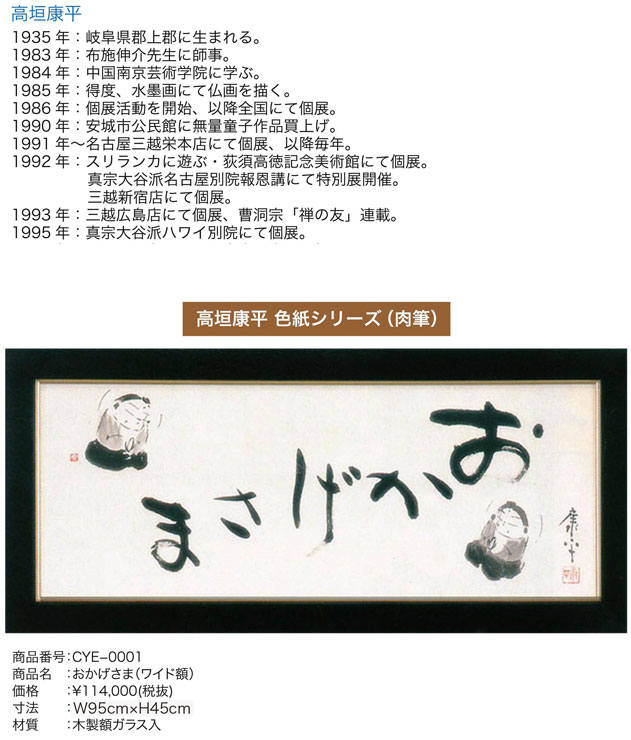 高垣康平
1935年：岐阜県郡上郡に生まれる。
1983年：布施伸介先生に師事。
1984年：中国南京芸術学院に学ぶ。
1985年：得度、水墨画にて仏画を描く。
1986年：個展活動を開始、以降全国にて個展。
1990年：安城市公民館に無量童子作品買上げ。
1991年～名古屋三越栄本店にて個展、以降毎年。
1992年：スリランカに遊ぶ・荻須高徳記念美術館にて個展。
真宗大谷派名古屋別院報恩講にて特別展開催。
三越新宿店にて個展。
1993年：三越広島店にて個展、曹洞宗「禅の友」連載。
1995年：真宗大谷派ハワイ別院にて個展。
高垣康平 色紙シリーズ（肉筆）
おかげさま
康平
商品番号：CYE−0001
商品名　：おかげさま（ワイド額）
価格　　：¥114,000(税抜)
寸法　　：W95cm×H45cm
材質　　：木製額ガラス入